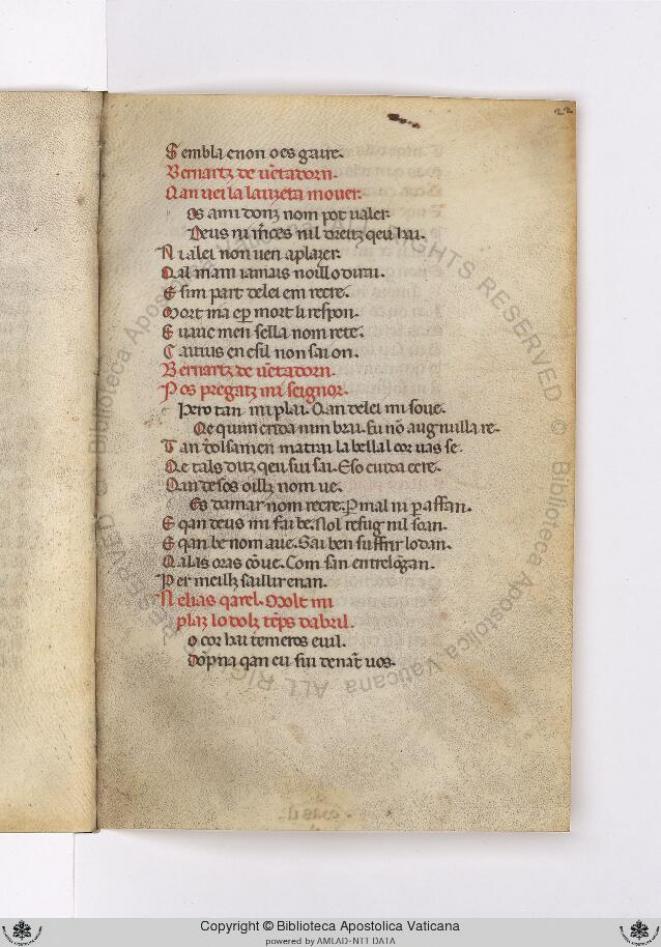 22
Sembla e non oes gaire.
Bernartz de uētadorn.
Qan uei la lauzeta mouer.
Os ami donz nom pot ualer.
Deus ni m̄ces nil dreitz qeu hai.
Ni a lei non uen a plazer.
Qil mam iamais noillo dirai.
E sim part de lei em recre.
Mort ma ep̲ mort li respon.
E uauc men sella nom rete.
Caitius en esil non sai on.
Bernartz de uētadorn.
Pos pregatz mi seignor.
Pero tan mi plai. Qan de lei mi soue.
Qe qim crida nim brai. Eu nō aug nulla re.
Tan dolsamen matrai la bella l cor uas se.
Qe tals ditz qeu sui sai. Eso cuida e cre.
Qan de sos oillz nom ue.
Es damar nom recre. P̲ mal ni p̲ affan.
E qan deus mi fai be. Nol refug nil soan.
E qan be nom aue. Sai ben suffrir lo dan.
Qalas oras cōue. Com san entrelōgan.
Per meillz saillir enan.
N elias qarel. Molt mi
plaz lo dolz tēps dabril.
o cor hai temeros e uil.
Dōpna qan eu sui denāt uos.
Copyright © Biblioteca Apostolica Vaticana
powered by AMLAD-NTT DATA
© Biblioteca Apostolica Vaticana ALL RIGHTS RESERVED